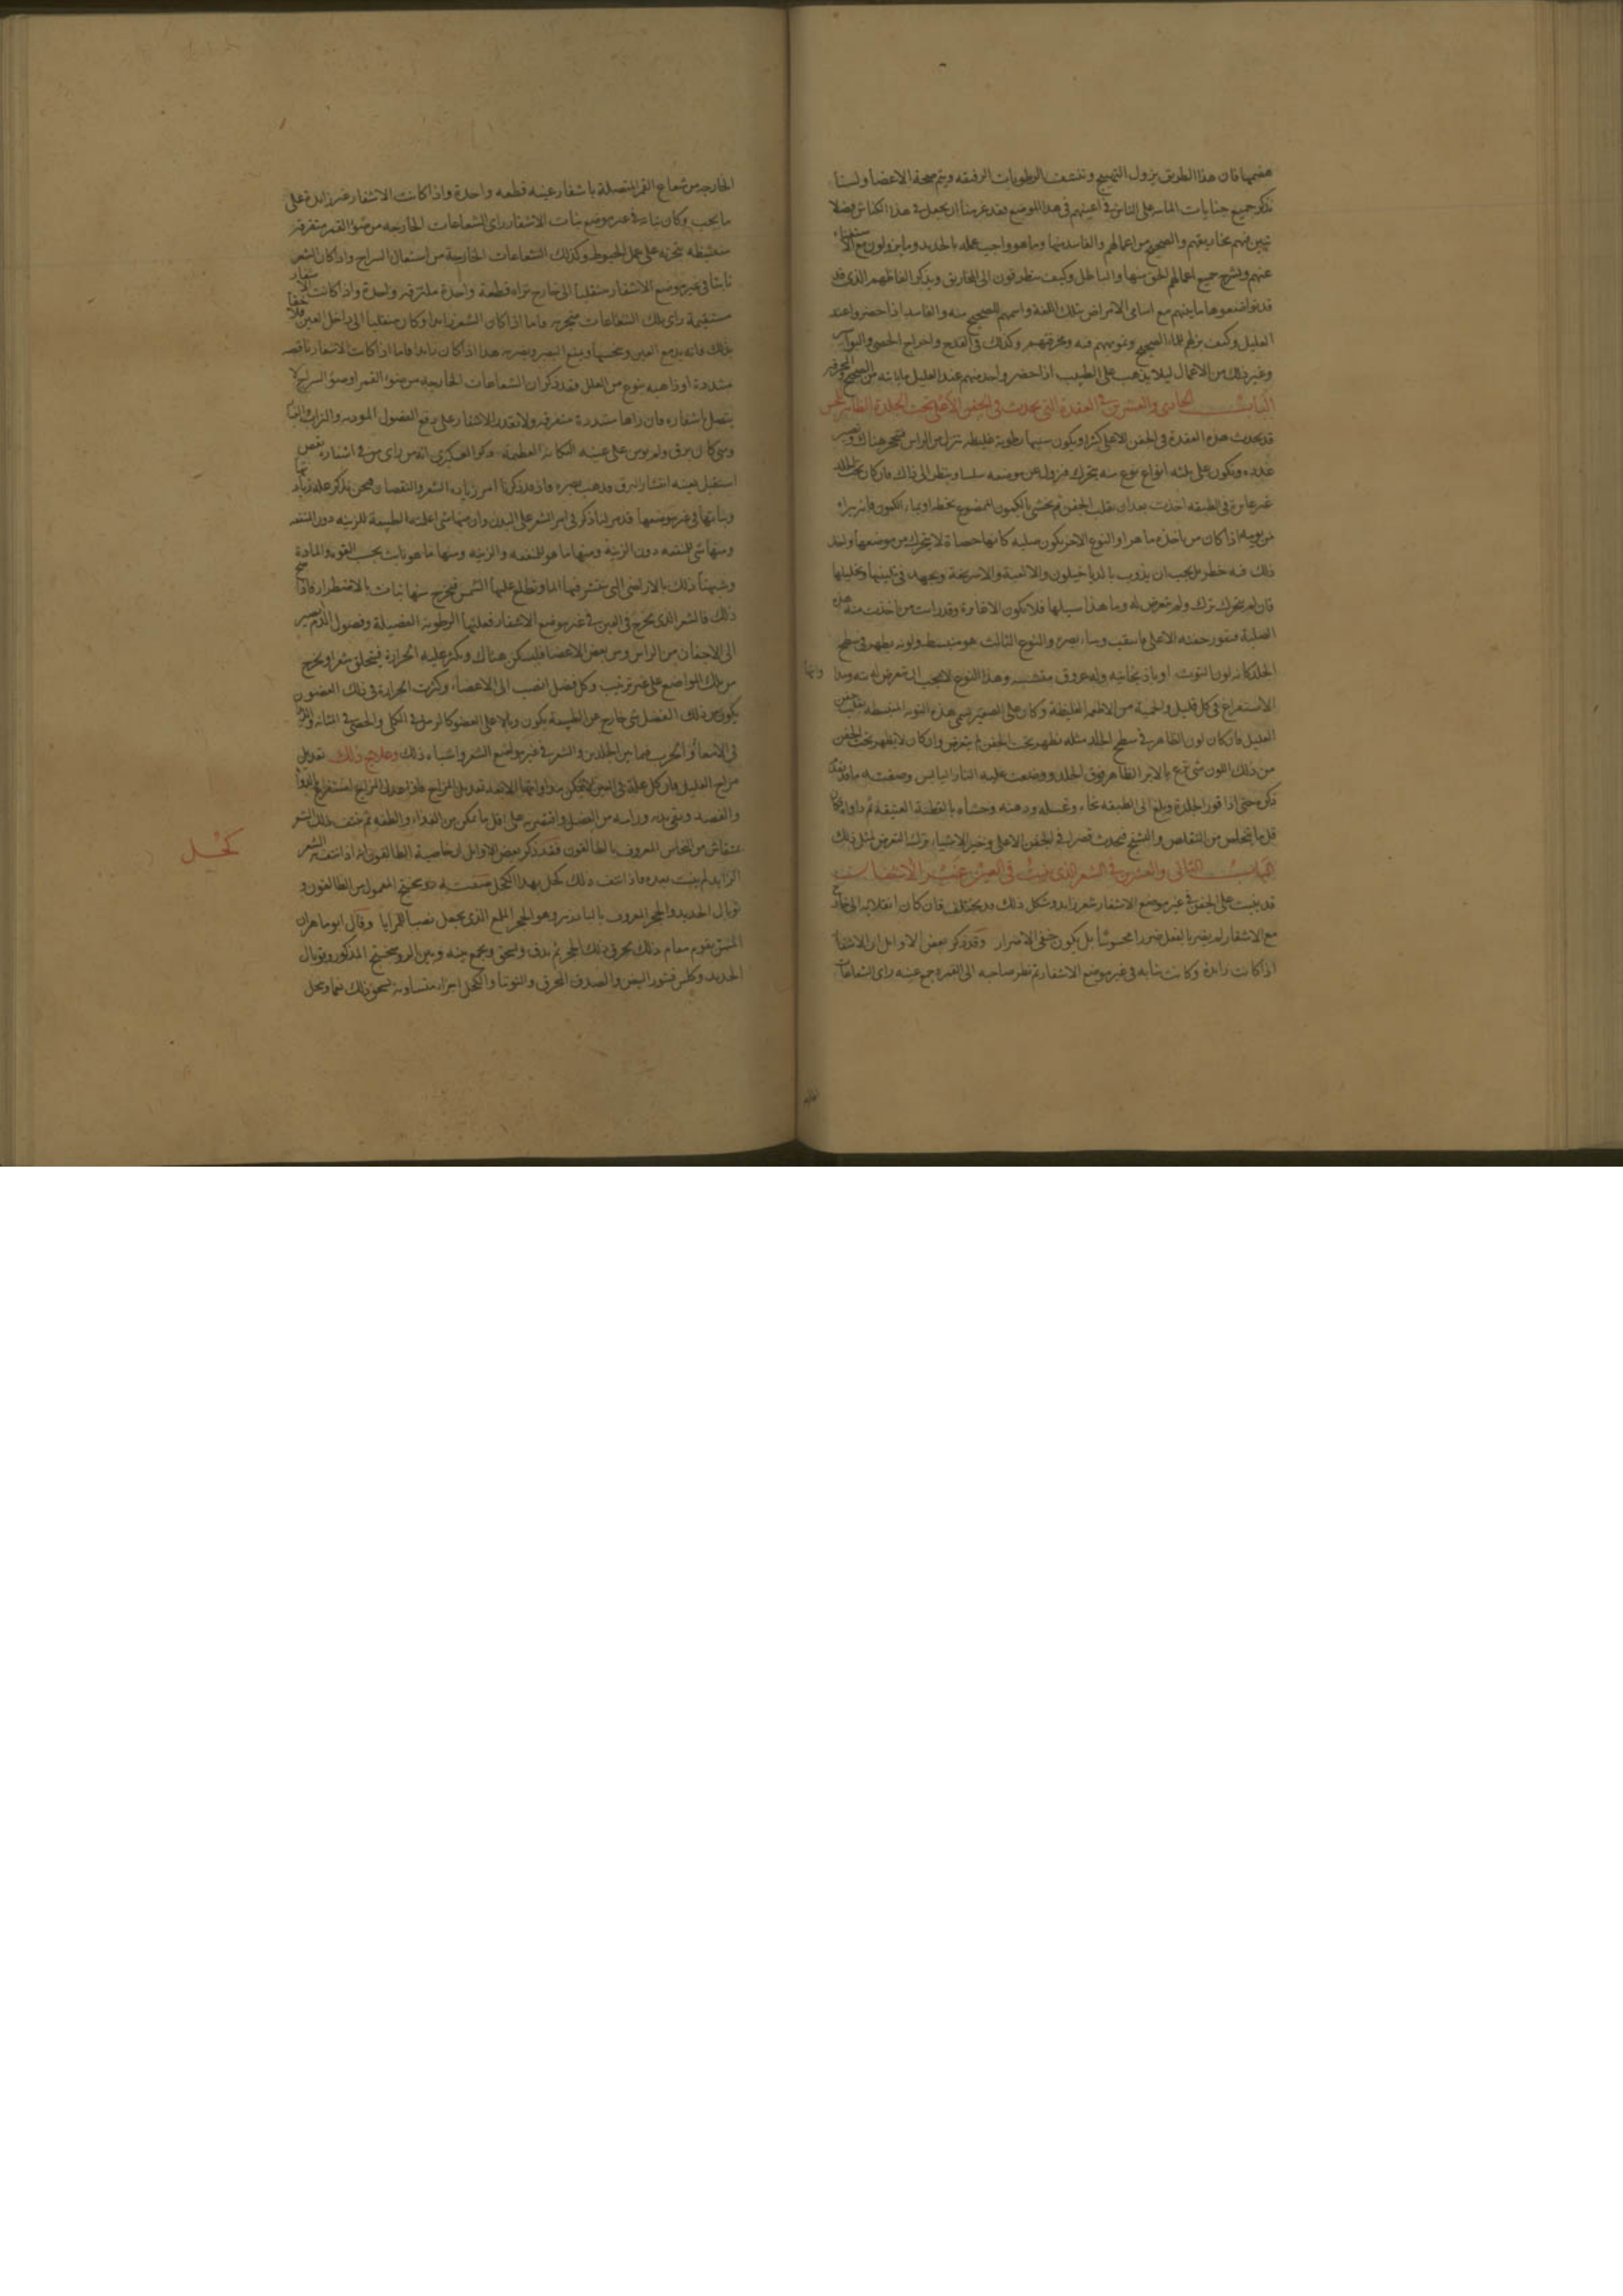 هضمها فان هذا الطريق يزول التهيج وتنشف الرطوبات الرقيقه ويتم صحة الاعضا ولسنا
نذكر جميع جنايات الماس على الناس في اعينهم في هذا الموضع فقد عزمنا ان نجعل في هذا الكناش فصلا
نبين فيهم مخاريقهم والصحيح من اعمالهم والفاسد منها وما هو واجب عمله بالحديد وما يزولون مع
عنهم ونشرح جميع اعمالهم الحق منها والباطل وكيف يتطرقون الى المخاريق ونذكر الفاظهم الذي قد
قد تواضعوها ما بينهم مع اسامي الامراض بتلك اللغة واسمهم الصحيح منه والفاسد اذا حضروا عند
العليل وكيف علما الصحيح وتمويههم فيه ومخرقتهم وكذلك في القدح واخراج الحصى والبواسير
وغير ذلك من الاعمال ليلا يذهب على الطبيب اذا حضر واحد منهم عند العليل ما ياتيه من الصحيح والمخرقة
الباب الحادي والعشرين في العقدة التي تحدث في الجفن الاعلى تحت الجلدة الظاهر للحس
قد يحدث هذه العقدة في الجفن الاعلى كثيرا ويكون سببها رطوبة غليظه تنزل من الراس فتتحجر هناك وتصير
غدده وتكون على ثلثه انواع نوع منه يتحرك فيزول عن موضعه سلسا وينظر الى ذلك فان كان تحت الجلد
غير غايرة في الطبقه اخذت بعد ان يقلب الجفن ثم يحشى بالكمون الممضوغ بخطر او بماء الكمون فانه يبراه
من يومه اذا كان من ياخذه ماهرا والنوع الاخر يكون صلبه كانها حصاة لا يتحرك من موضعها واخذ
ذلك فيه خطر بل يجب ان يذوب بالدياخيلون والالعبة والاسريخة ويجهد في تليينها وتحليلها
فان لم يتحرك ترك ولم يتعرض له وما هذا سبيلها فلا يكون الا قارة وقد رايت من اخذت منه هذه
الصلبة فتقور جفنه الاعلى فانتقب وساء بصره والنوع الثالث هو منبسط ولونه يظهر في سطح
الجلد كانه لون التوت او باذنجانيه وله عروق متشعبه وهذا النوع لا يجب ان تتعرض له بته وبدا
الاستفراغ في كل قليل والحمية من الاطعمه الغليظة وكان على الصوير يسمي هذه التوته المنبسطه بقلب جفن
العليل فان كان لون الظاهر في سطح الجلد مثله يظهر تحت الجفن لم يتعرض وان كان لا يظهر تحت الجفن
من ذلك اللون شي شرع بالابر الظاهر فوق الجلد ووضعت عليه النار اليابس وصفت ما قد تقدم
ذكره حتى اذا قور الجلدة وبلغ الى الطبقه نحاه وغسله ودهنه وحشاه بالقطنة العتيقة ثم داواه وكان
قل ما يتخلص من التقلص والتشنج فيحدث قصرا في الجفن الاعلى وخير الاشياء ترك التعرض لمثل ذلك
الباب الثاني والعشرين في الشعر الذي ينبت في العين عند الانتصاب
قد ينبت على الجفن في غير موضع الاشفار شعر زايد وشكل ذلك قد يختلف فان كان انقلابه الى خارج
مع الاشفار لم يضر بالفعل ضررا محسوسا بل يكون خفي الاضرار وقد ذكر بعض الاوايل ان الاشفار
اذا كانت زايدة وكانت نباته في غير موضع الاشفار ثم نظر صاحبه الى القمر وجمع عينه راى الشعاعات
الخارجه من شعاع القمر المتصلة باشفار عينه قطعه واحدة واذا كانت الاشفار غير زايدة على
ما يجب وكان نباته في غير موضع نبات الاشفار راى الشعاعات الخارجه من ضوء القمر متفرقة
متشظيه متحزيه على عمل الخيوط وكذلك الشعاعات الخارجة من اشتعال السراج واذا كان الشعر
نابتا في غير موضع الاشفار منقلبا الى خارج تراه قطعة واحدة ملتزقه واحدة واذا كانت الاشفار
مستقيمة راى تلك الشعاعات متحزيه فاما اذا كان الشعر زايدا وكان منقلبا الى داخل العين فلا خفا
بذلك فانه يدمع العين وينخسها ويمنع البصر ويضر به هذا اذا كان زايدا فاما اذا كانت الاشفار ناقصه
متبددة او ذاهبه بنوع من العلل فقد ذكر ان الشعاعات الخارجه من ضوء القمر او ضوء السراج لا
يتصل باشفاره فان راها متبددة متفرقه ولا تقدر الاشفار على دفع الفضول الموذيه والتراب والغبار
ومتى كان برق ولم يومن على عينيه النكاية العظيمة وذكر العسكري انه من راى من في اشفاره نقص
استقبل بعينه انتشار البرق فذهب بصره واذ قد ذكرنا امر زياده الشعر والنقصان فنحن نذكر علة زيادتها
ونباتها في غير موضعها قد مر لنا ذكر في امر الشعر على البدن وان منها شي اعدته الطبيعة للزينه دون المنفعه
ومنها شي للمنفعه دون الزينة ومنها ما هو للمنفعه والزينه ومنها ما هو نابت بحسب القوة والمادة
وشبهنا ذلك بالاراضي التي ينتشر فيها الما وتطلع عليها الشمس فيخرج منها نبات بالاضطرار فاذا صح
ذلك فالشعر الذي يخرج في العين في غير موضع الاشفار فعلتها الرطوبه الفضيلة وفضول الدم يصير
الى الاجفان من الراس ومن بعض الاعضا فيسكن هناك ويكثر عليه الحرارة فيتخلق شعرا ويخرج
من تلك المواضع على غير ترتيب وكل فضل انصب الى الاعضاء وكثرت الحرارة في ذلك العضو
يكون من ذلك الفضل شي خارج عن الطبيعة يكون وبالا على العضو كالرمل في الكلى والحصى في المثانه والدود
في الامعاء والجرب فيما بين الجلدين والشعر في غير مواضع الشعر واشباه ذلك وعلاج ذلك تعديل
مزاج العليل فان كل علة في العين لا يمكن مداواتها الا بعد تعديل المزاج فاذا عدل المزاج استفرغ بالدواء
والفصد ونقي بدنه وراسه من الفضل واقتصر به على اقل ما يمكن من الغذاء والطفه ثم نتف ذلك الشعر
بمنقاش من النحاس المعروف بالطاليقون فقد ذكر بعض الاوايل ان خاصية الطاليقون انه اذا نتف به الشعر
الزايد لم ينبت بعده فاذا نتف ذلك كحل بهذا الكحل صفته المعمول من الطاليقون و
توبال الحديد والحجر المعروف وهو الحجر الملمع الذي يجعل نصبا للمرايا وقال ابو ماهر ان
المسن يقوم مقام ذلك يحرق ذلك الحجر ثم يدق ويسحق ويجمع بينه وبين المذكور وتوبال
الحديد وكلس قشور البيض والصدف المحرق والتوتيا والكحل اجزاء متساويه يسحق ذلك نعما ويحل
كحل